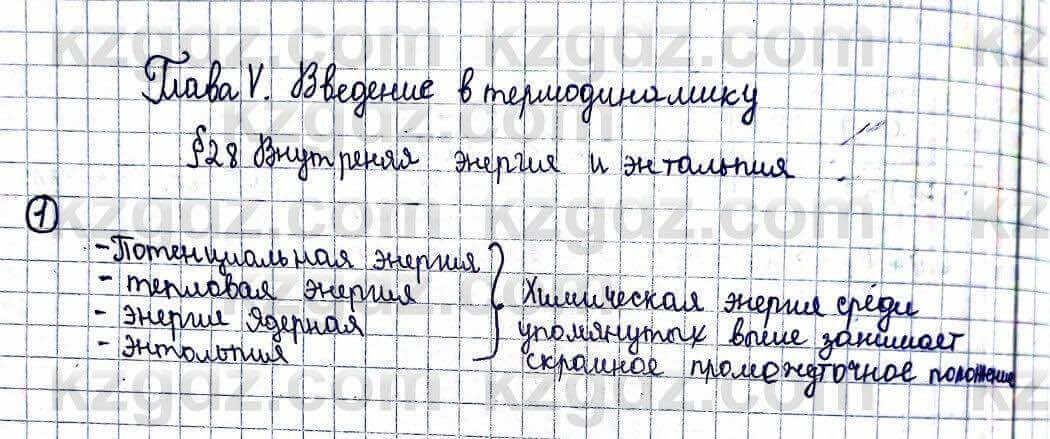 Глава V. Введение в термодинамику
§28 Внутреняя энергия и энтальпия
1
-Потенциальная энергия
- тепловая энергия
- энергия ядерная
- энтольпия
Химическая энергия среди
упомянутых выше занимает
скрамное промежуточное положение
kzgdz.com